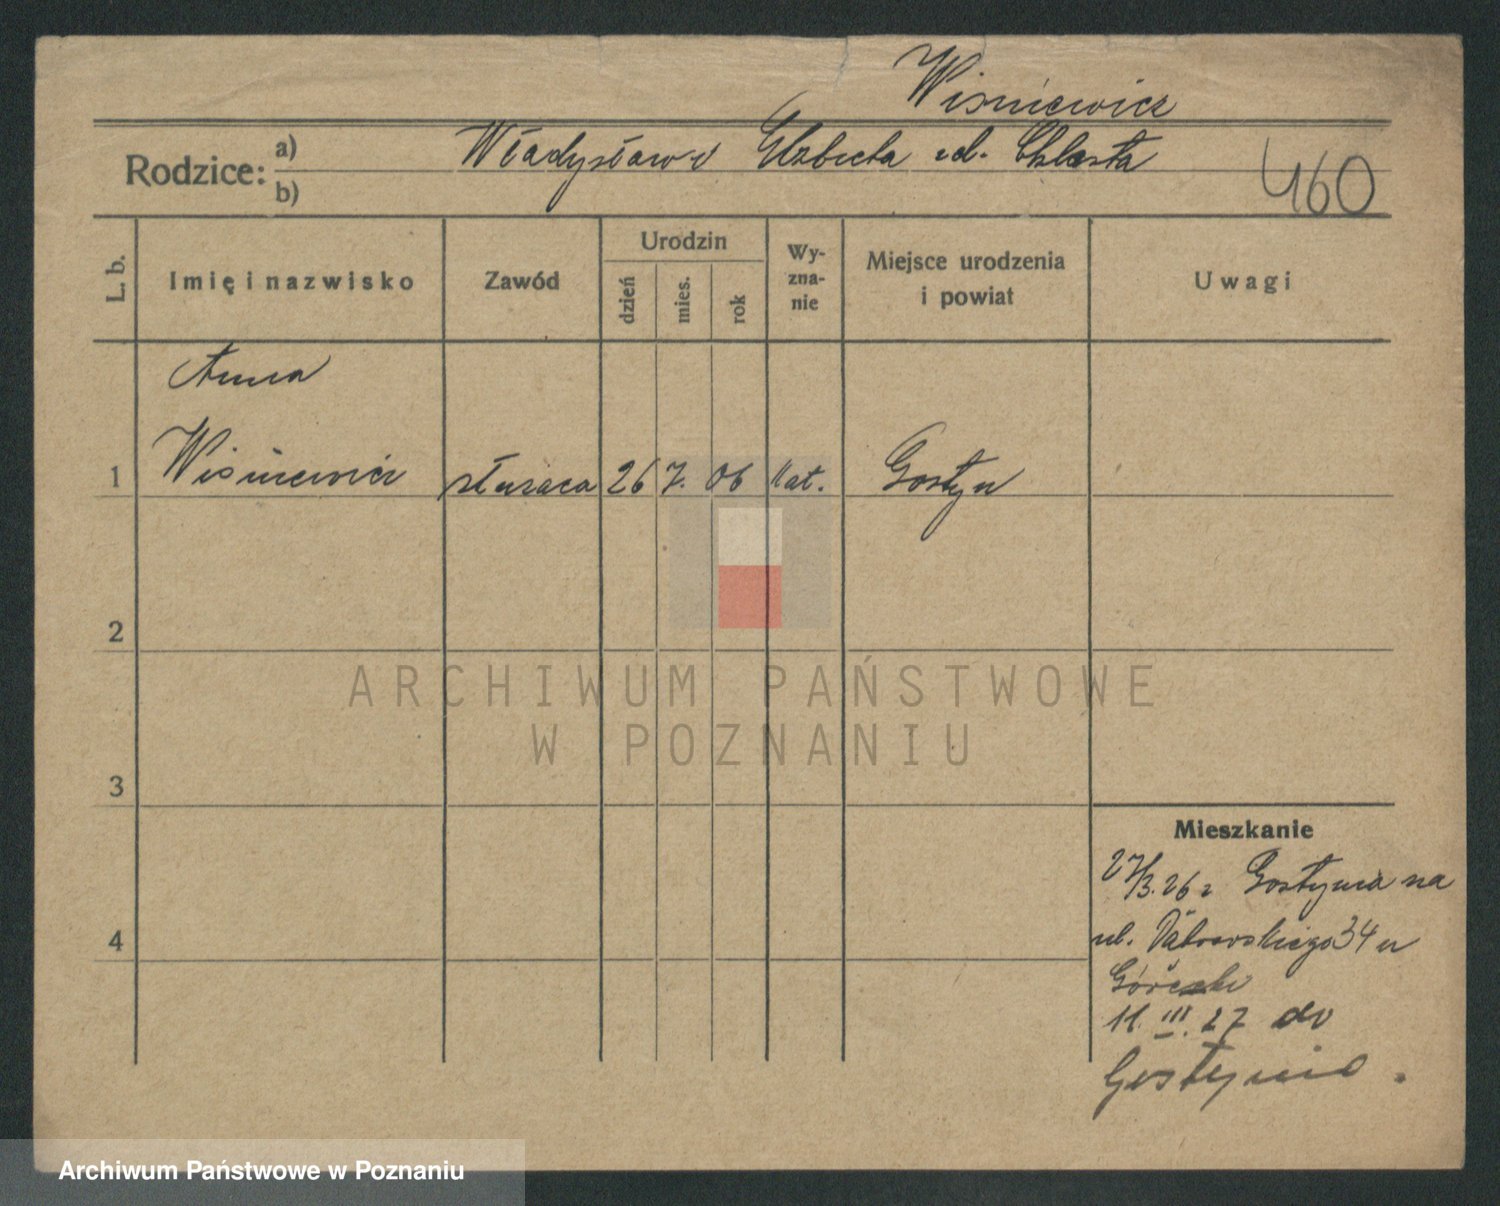 Wiśniewicz
Rodzice: a) Władysław i Elzbieta
b)
460
L. b.
Imię i nazwisko
Zawód
Urodzin
dzień
mies.
rok
Wy-
zna-
nie
Miejsce urodzenia
i powiat
Uwagi
Anna
1 Wiśniewicz służąca 26 7. 06 kat. Gostyń
2
3
4
ARCHIWUM PAŃSTWOWE
W POZNANIU
Mieszkanie
27/3.26 z Gostynia na
ul. Dąbrowskiego 34 u
11. III. 27 do
Gostynia.
Archiwum Państwowe w Poznaniu